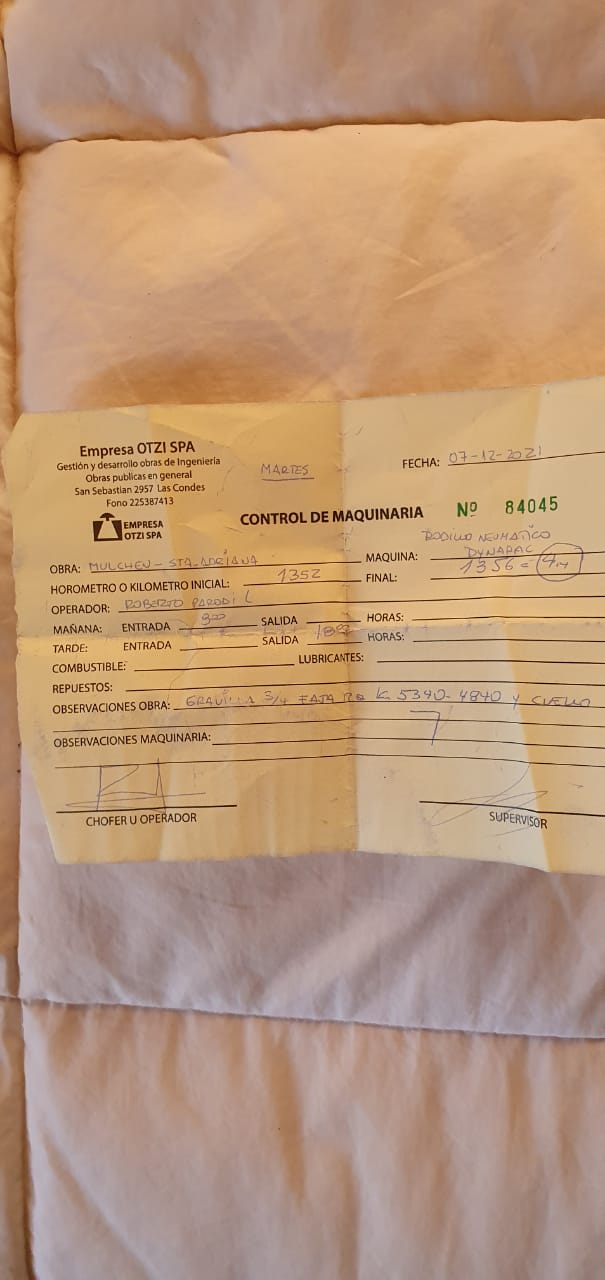 Empresa OTZI SPA
Gestión y desarrollo obras de Ingeniería
Obras publicas en general
San Sebastian 2957 Las Condes
Fono 225387413
EMPRESA
OTZI SPA
MARTES
FECHA: 07-12-2021
CONTROL DE MAQUINARIA Nº 84045
OBRA: MULCHEN - STA. ADRIANA
MAQUINA: RODILLO NEUMATICO
DYNAPAC
HOROMETRO O KILOMETRO INICIAL: 1352
FINAL: 1356 = 4H
OPERADOR: ROBERTO PARODI L
MAÑANA: ENTRADA 800 SALIDA HORAS:
TARDE: ENTRADA SALIDA HORAS:
COMBUSTIBLE: LUBRICANTES:
REPUESTOS:
OBSERVACIONES OBRA: GRAVILLA 3/4 FAJA K 5340-4840 Y
OBSERVACIONES MAQUINARIA:
CHOFER U OPERADOR
SUPERVISOR